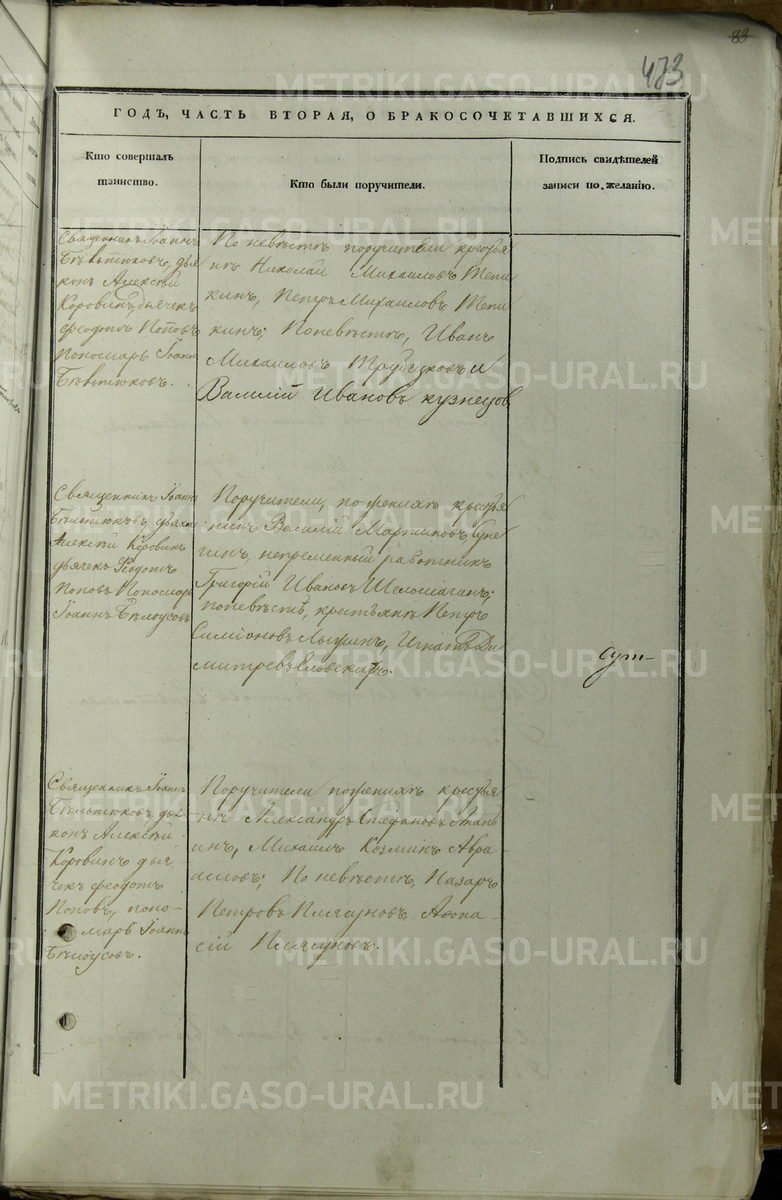 83
473
ГОДЪ, ЧАСТЬ ВТОРАЯ, О БРАКОСОЧЕТАВШИХСЯ.
Кто совершалъ
таинство.
Кто были поручители.
Подпись свидѣтелей
записи по желанію.
Священникъ Іоаннъ
дья
конъ Алексѣй
Коровинъ, дьячекъ
Ѳеодотъ Поповъ
Пономарь Іоаннъ
По невѣстѣ поручители крестья
не Николай Михаиловъ
Петръ Михаиловъ
По невѣстѣ, Иванъ
Михаиловъ Трубецковъ и
Василій Ивановъ кузнецов
Священникъ Іоаннъ
дьяконъ
Алексѣй Коровинъ
дьячекъ Ѳеодотъ
Поповъ Пономарь
Іоаннъ Бѣлоусовъ
Поручители, по женихѣ крестья
нинъ Василій Мартиновъ
непременный работникъ
Григорій Ивановъ
по невѣстѣ, крестьяне Петръ
Симіоновъ Игнатъ Ди
митревъ
Священникъ Іоаннъ
дья
конъ Алексѣй
Коровинъ дья
чекъ Ѳеодотъ
Поповъ, поно
марь Іоаннъ
Бѣлоусовъ.
Поручители по женихѣ крестья
не Александръ Стефановъ
Михаилъ Козминъ Авра
амовъ; По невѣстѣ, Назаръ
Петровъ Плясуновъ, Аѳона
сій Плясуновъ.
METRIKI.GASO-URAL.RU